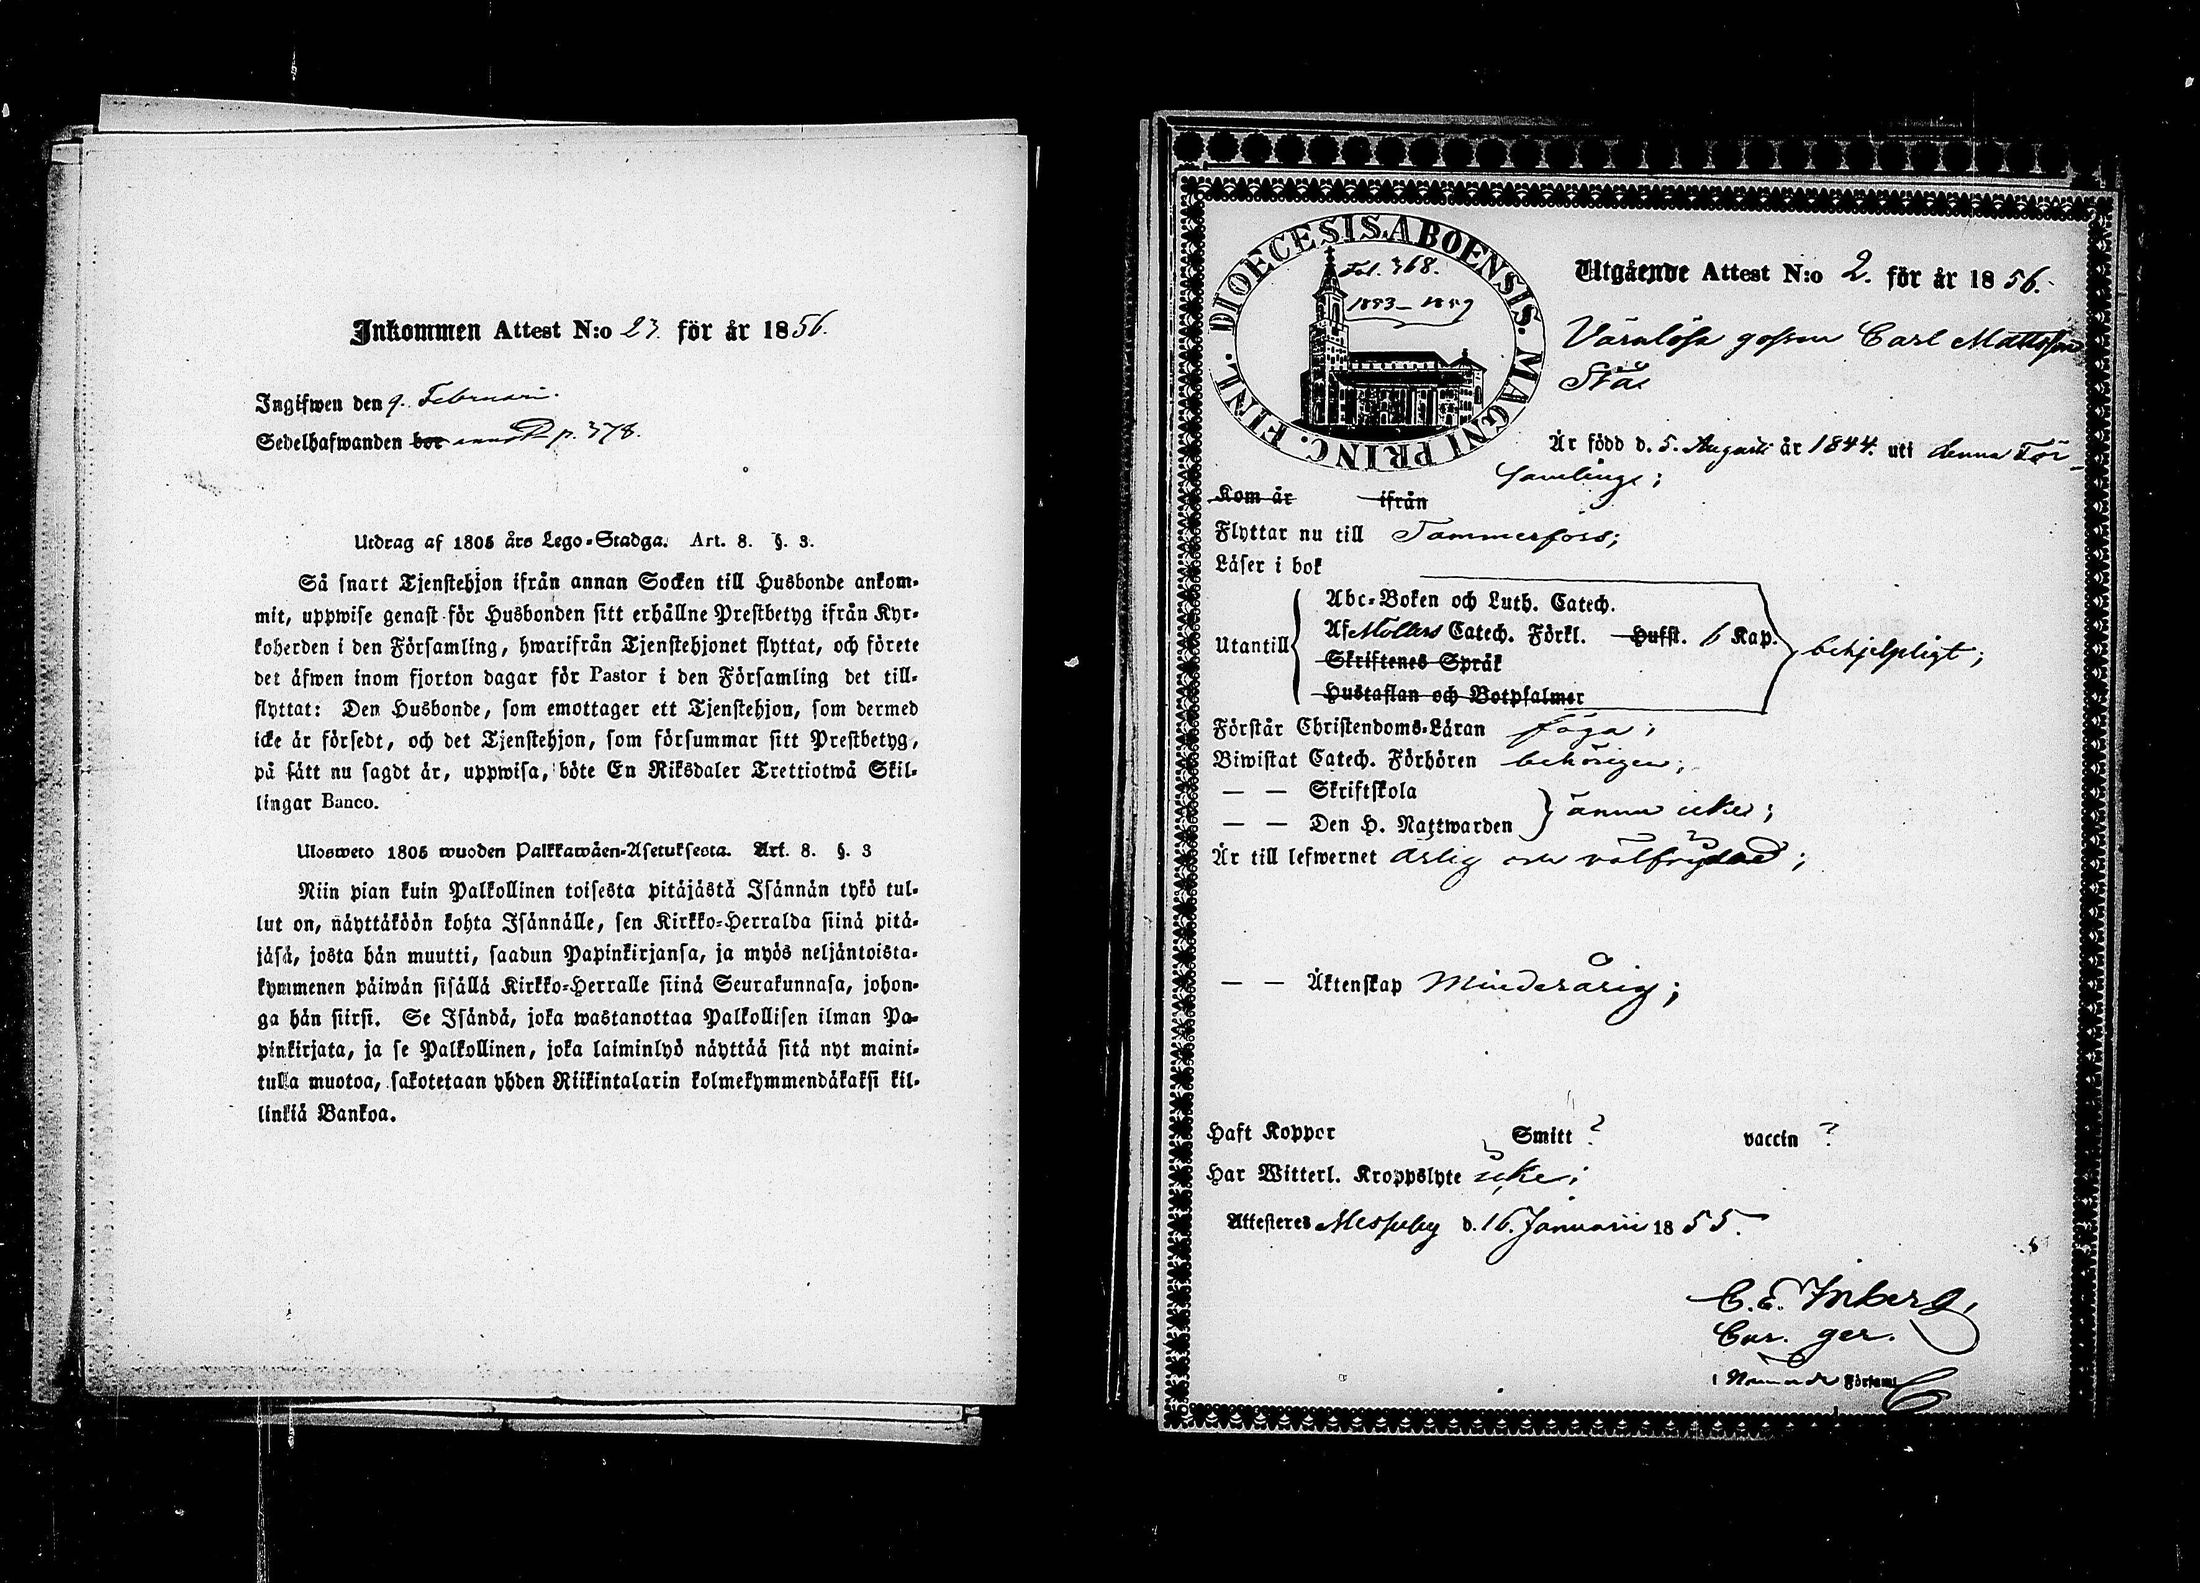 Inkommen Attest N:o 23. för år 1856.
Ingifwen den 9. Februari.
Sedelhafwanden bor p. 378.
Utdrag af 1805 års Lego-Stadga. Art. 8. §. 3.
Så snart Tjenstehjon ifrån annan Socken till Husbonde ankom-
mit, uppwise genast för Husbonden sitt erhållne Prestbetyg ifrån Kyr-
koherden i den Församling, hwarifrån Tjenstehjonet flyttat, och förete
det äfwen inom fjorton dagar för Pastor i den Församling det till-
flyttat: Den Husbonde, som emottager ett Tjenstehjon, som dermed
icke är försedt, och det Tjenstehjon, som försummar sitt Prestbetyg,
på sätt nu sagdt är, uppwisa, böte En Riksdaler Trettiotwå Skil-
lingar Banco.
Ulosweto 1805 wuoden Palkkawäen-Asetuksesta. Art. 8. §. 3
Niin pian kuin Palkollinen toisesta pitäjästä Isännän tykö tul-
lut on, näyttäköön kohta Isännälle, sen Kirkko-Herralda siinä pitä-
jäsä, josta hän muutti, saadun Papinkirjansa, ja myös neljäntoista-
kymmenen päiwän sisällä Kirkko-Herralle siinä Seurakunnasa, johon-
ga hän siirsi. Se Isändä, joka wastanottaa Palkollisen ilman Pa-
pinkirjata, ja se Palkollinen, joka laiminlyö näyttää sitä nyt maini-
tulla muotoa, sakotetaan yhden Riikintalarin kolmekymmendäkaksi kil-
linkiä Bankoa.
DIOECESIS ABOENSIS. MAGNI PRINC. FINL.
Fol. 368.
1853-1859
Utgående Attest N:o 2. för år 1856.
Värnlösa gossen Carl Mattsson
Stås
Är född d. 5. Augusti år 1844. uti denna För-
samlings;
Kom år ifrån
Flyttar nu till Tammerfors;
Läser i bok
Utantill
Abc-Boken och Luth. Catech.
Af Möllers Catech. Förkl. Hufst. 6 Kap.
Skriftenes Språk
Hustaflan och Botpsalmer
behjelpligt;
Förstår Christendoms-Läran föga;
Biwistat Catech. Förhören behörigen;
— — Skriftskola
— — Den H. Nattwarden
ännu icke;
Är till lefwernet ärlig och välfrejdad;
— — Äktenskap Minderårig;
Haft Koppor Smitt ? vaccin ?
Har Witterl. Kroppslyte icke;
Attesteres Messuby d. 16. Januarii 1855.
C. E. Inberg,
Cur. ger.
i Nämnde Församl